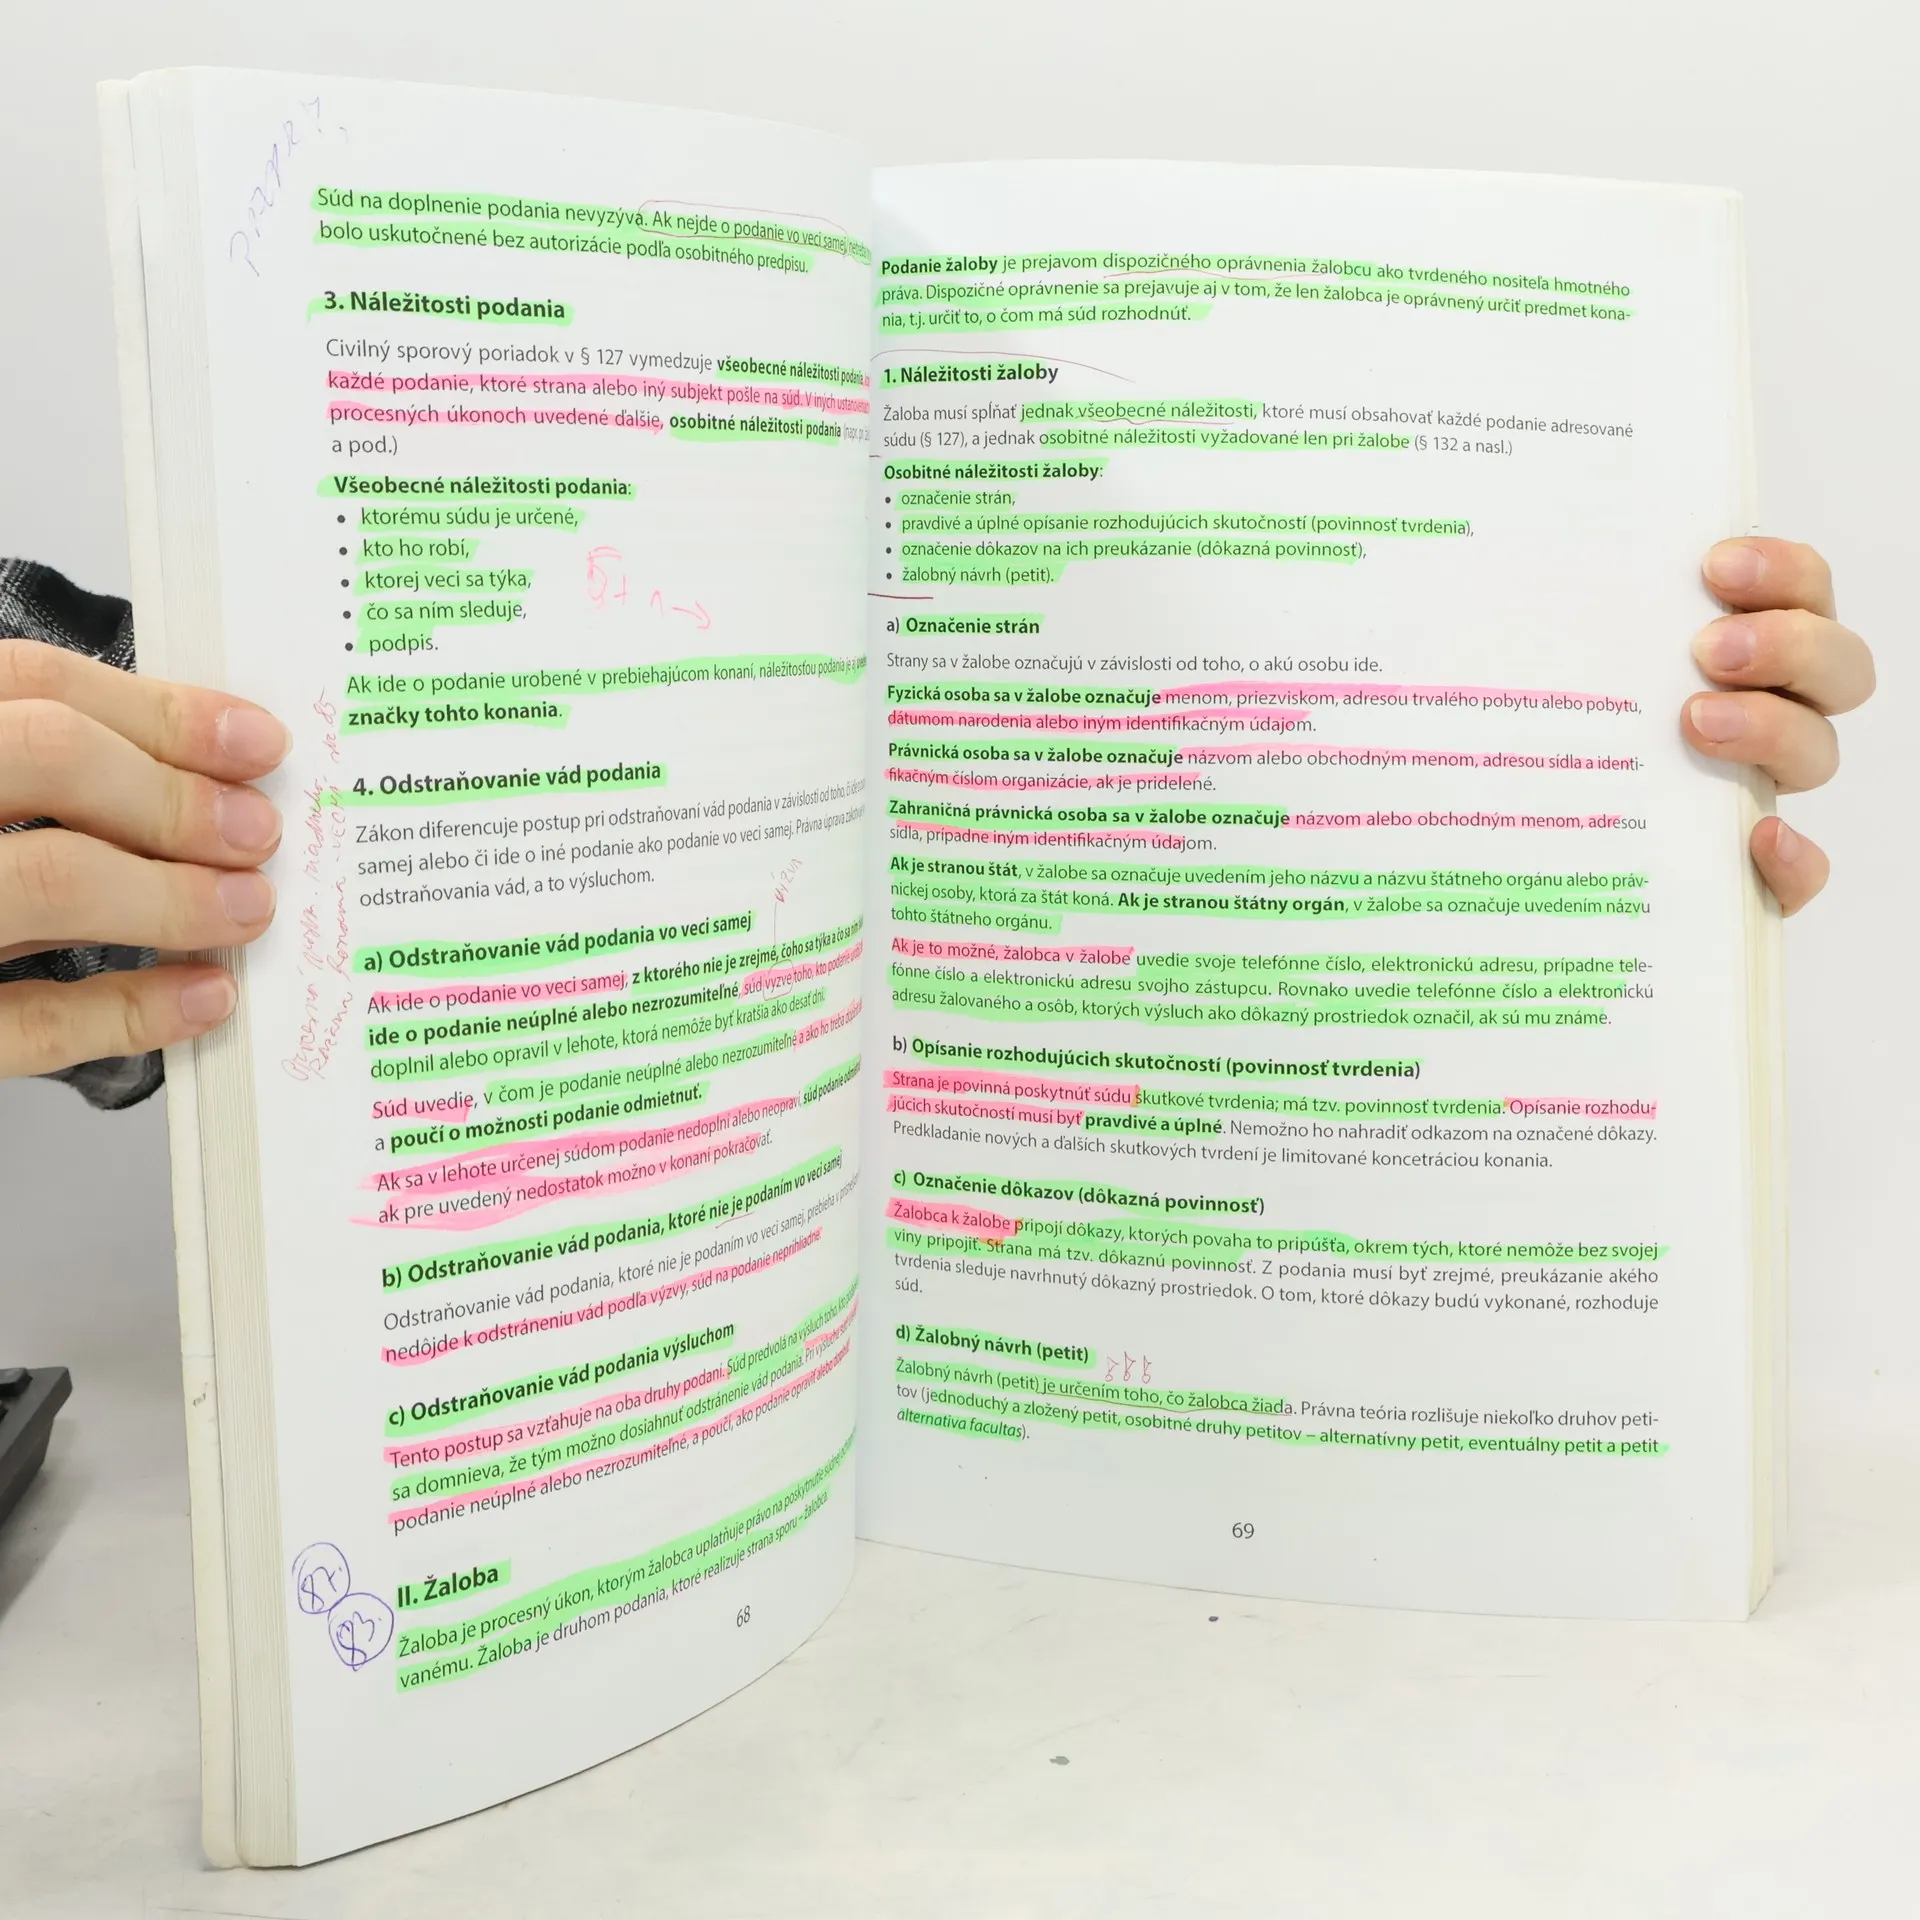 Súd na doplnenie podania nevyzýva. Ak nejde o podanie vo veci samej,
bolo uskutočnené bez autorizácie podľa osobitného predpisu.
3. Náležitosti podania
Civilný sporový poriadok v § 127 vymedzuje všeobecné náležitosti podania,
každé podanie, ktoré strana alebo iný subjekt pošle na súd. V iných
procesných úkonoch uvedené ďalšie, osobitné náležitosti podania
a pod.)
Všeobecné náležitosti podania:
• ktorému súdu je určené,
• kto ho robí,
• ktorej veci sa týka,
• čo sa ním sleduje,
• podpis.
Ak ide o podanie urobené v prebiehajúcom konaní, náležitosťou podania je aj
značky tohto konania.
4. Odstraňovanie vád podania
Zákon diferencuje postup pri odstraňovaní vád podania v závislosti od toho, či ide o
samej alebo či ide o iné podanie ako podanie vo veci samej. Právna úprava
odstraňovania vád, a to výsluchom.
výzva
a) Odstraňovanie vád podania vo veci samej
Ak ide o podanie vo veci samej, z ktorého nie je zrejmé, čoho sa týka a čo sa ním
ide o podanie neúplné alebo nezrozumiteľné, súd vyzve toho, kto podanie
doplnil alebo opravil v lehote, ktorá nemôže byť kratšia ako desať dní.
Súd uvedie, v čom je podanie neúplné alebo nezrozumiteľné a ako ho treba
a poučí o možnosti podanie odmietnuť.
Ak sa v lehote určenej súdom podanie nedoplní alebo neopraví, súd podanie
ak pre uvedený nedostatok možno v konaní pokračovať.
b) Odstraňovanie vád podania, ktoré nie je podaním vo veci samej
Odstraňovanie vád podania, ktoré nie je podaním vo veci samej, prebieha v
nedôjde k odstráneniu vád podľa výzvy, súd na podanie neprihliadne.
c) Odstraňovanie vád podania výsluchom
Tento postup sa vzťahuje na oba druhy podaní. Súd predvolá na výsluch toho, kto
sa domnieva, že tým možno dosiahnuť odstránenie vád podania. Pri výsluchu súd
podanie neúplné alebo nezrozumiteľné, a poučí, ako podanie opraviť alebo doplniť.
87.
93.
II. Žaloba
Žaloba je procesný úkon, ktorým žalobca uplatňuje právo na poskytnutie súdnej
vanému. Žaloba je druhom podania, ktoré realizuje strana sporu – žalobca.
68
Podanie žaloby je prejavom dispozičného oprávnenia žalobcu ako tvrdeného nositeľa hmotného
práva. Dispozičné oprávnenie sa prejavuje aj v tom, že len žalobca je oprávnený určiť predmet kona-
nia, t.j. určiť to, o čom má súd rozhodnúť.
1. Náležitosti žaloby
Žaloba musí spĺňať jednak všeobecné náležitosti, ktoré musí obsahovať každé podanie adresované
súdu (§ 127), a jednak osobitné náležitosti vyžadované len pri žalobe (§ 132 a nasl.)
Osobitné náležitosti žaloby:
• označenie strán,
• pravdivé a úplné opísanie rozhodujúcich skutočností (povinnosť tvrdenia),
• označenie dôkazov na ich preukázanie (dôkazná povinnosť),
• žalobný návrh (petit).
a) Označenie strán
Strany sa v žalobe označujú v závislosti od toho, o akú osobu ide.
Fyzická osoba sa v žalobe označuje menom, priezviskom, adresou trvalého pobytu alebo pobytu,
dátumom narodenia alebo iným identifikačným údajom.
Právnická osoba sa v žalobe označuje názvom alebo obchodným menom, adresou sídla a identi-
fikačným číslom organizácie, ak je pridelené.
Zahraničná právnická osoba sa v žalobe označuje názvom alebo obchodným menom, adresou
sídla, prípadne iným identifikačným údajom.
Ak je stranou štát, v žalobe sa označuje uvedením jeho názvu a názvu štátneho orgánu alebo práv-
nickej osoby, ktorá za štát koná. Ak je stranou štátny orgán, v žalobe sa označuje uvedením názvu
tohto štátneho orgánu.
Ak je to možné, žalobca v žalobe uvedie svoje telefónne číslo, elektronickú adresu, prípadne tele-
fónne číslo a elektronickú adresu svojho zástupcu. Rovnako uvedie telefónne číslo a elektronickú
adresu žalovaného a osôb, ktorých výsluch ako dôkazný prostriedok označil, ak sú mu známe.
b) Opísanie rozhodujúcich skutočností (povinnosť tvrdenia)
Strana je povinná poskytnúť súdu skutkové tvrdenia; má tzv. povinnosť tvrdenia. Opísanie rozhodu-
júcich skutočností musí byť pravdivé a úplné. Nemožno ho nahradiť odkazom na označené dôkazy.
Predkladanie nových a ďalších skutkových tvrdení je limitované koncetráciou konania.
c) Označenie dôkazov (dôkazná povinnosť)
Žalobca k žalobe pripojí dôkazy, ktorých povaha to pripúšťa, okrem tých, ktoré nemôže bez svojej
viny pripojiť. Strana má tzv. dôkaznú povinnosť. Z podania musí byť zrejmé, preukázanie akého
tvrdenia sleduje navrhnutý dôkazný prostriedok. O tom, ktoré dôkazy budú vykonané, rozhoduje
súd.
d) Žalobný návrh (petit) !!!
Žalobný návrh (petit) je určením toho, čo žalobca žiada. Právna teória rozlišuje niekoľko druhov peti-
tov (jednoduchý a zložený petit, osobitné druhy petitov – alternatívny petit, eventuálny petit a petit
alternativa facultas).
69